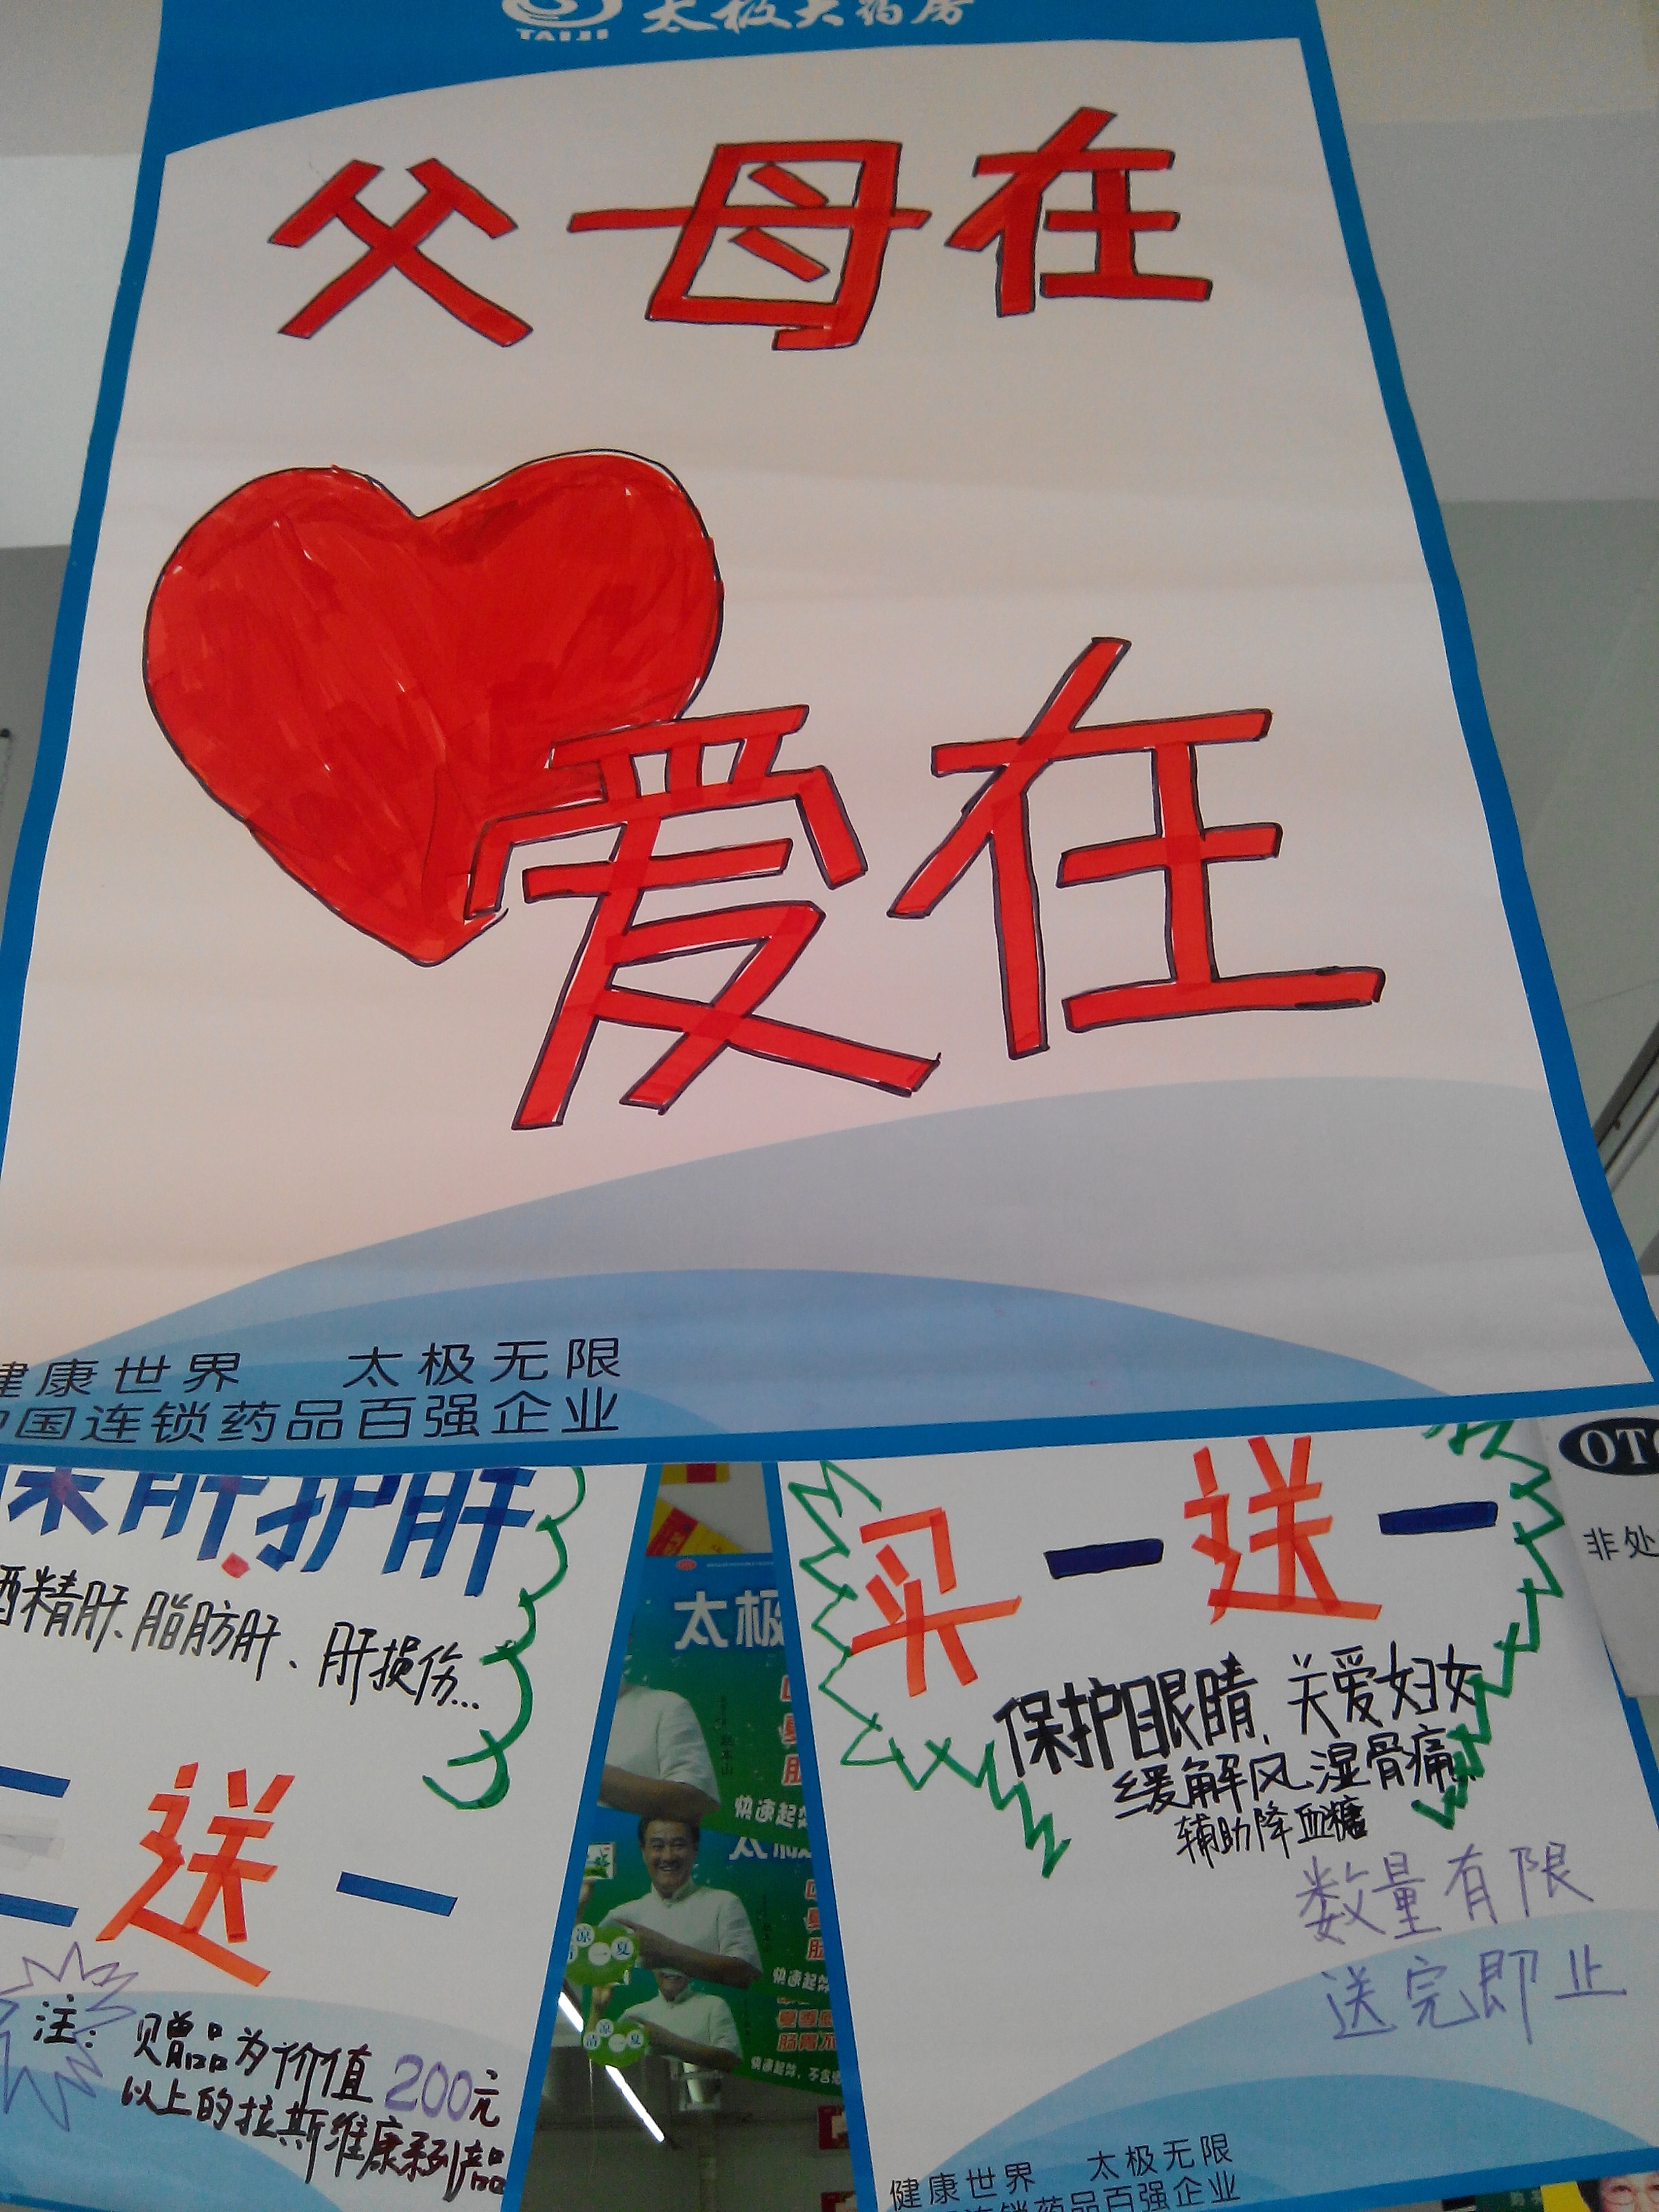 TAIJI 太极大药房
父母在
爱在
健康世界 太极无限
中国连锁药品百强企业
保肝护肝
酒精肝、脂肪肝、肝损伤...
三送一
注: 赠品为价值200元
以上的拉斯维康系列产品
买一送一
保护眼睛、关爱妇女
缓解风湿骨痛
辅助降血糖
数量有限
送完即止
健康世界 太极无限
连锁药品百强企业
OTC
非处
太极
快速起效
太极
快速起效
清凉一夏
快速起效